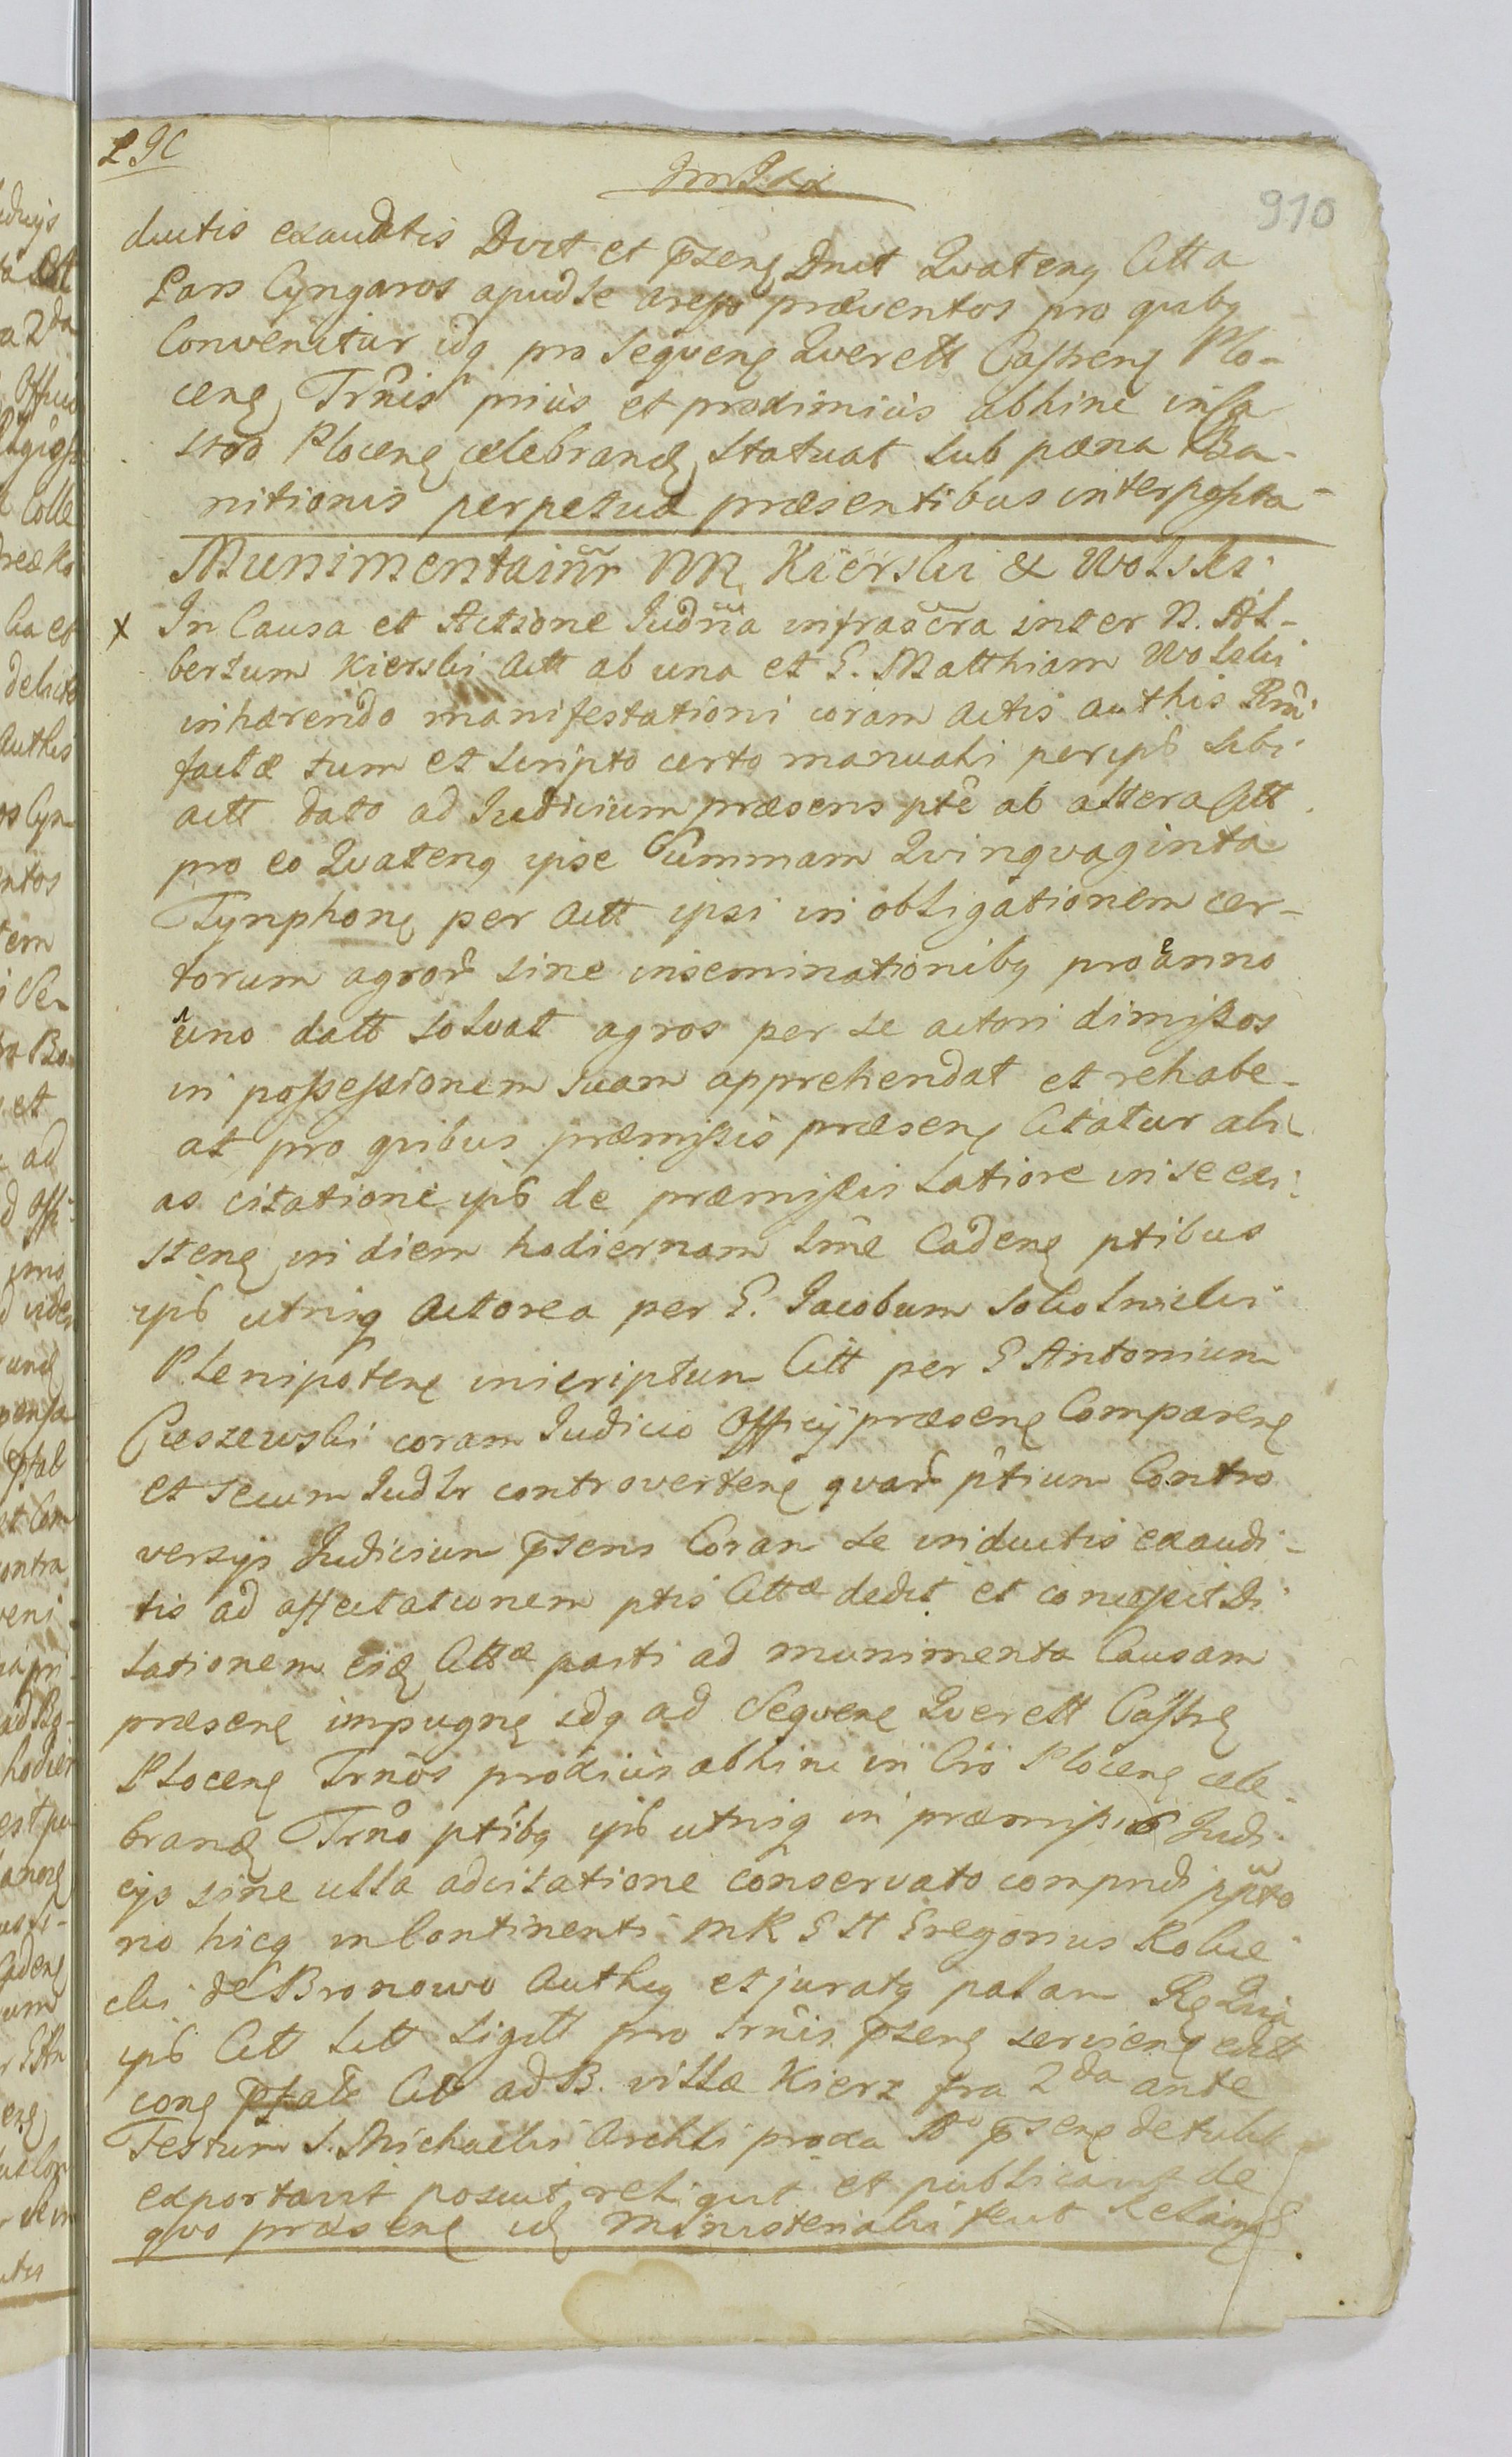 910
ductis exaudtis Dvit et p̄senȩ Dnut Qvatenq Citta
Pars Cyngaros apud se præventos pro quibq
Convenitur idq pro Seqvenȩ Qverell Castrenȩ Plo-
cenȩ Trn̂is prius et proximius abhinc in Ca
stro Plocenȩ celebrandȩ Statuat sub pœna Ba-
nitionis perpetuæ præsentibus interposita
Munimenta inr̃ NN. Kierski & Wolski
x In Causa et Actione Judñia infrascr̃a inter N. Al-
bertum Kierski Actt ab una et G. Matthiam Wolski
inhærendo manifestationi coram actis authis
factæ tum et scripto certo manuali per ips sibi
actt dato ad Judicium præsens pt̂e ab altera Citt
pro eo Qvatenq ipse Summam Qvinqvaginta
Tynphonȩ per Actt ipsi in obligationem cer-
torum agror̃ sine inseminationibq pro anno
uno datt solvat agros per se actori dimissos
in possessionem suam apprehendat et rehabe-
at pro qvibus præmissis præsenȩ Citatur ali-
as citatione ips de præmissis latiore in se exi-
stenȩ in diem hodiernam lm̂e Cadenȩ ptibus
ips utrisq Actorea per G. Jacobum Sokolnicki
Plenipotenȩ inscriptum Citt per G Antonium
Cieszewski coram Judicio Officij præsenȩ Comparenȩ
et secum Judlr controvertenȩ qvar̃ p̂tium Contro
versijs Judicium p̄sens Coram se inductis exaudi-
tis ad affectationem ptis Cittæ dedit et concessit Di-
lationem eidȩ Cittæ parti ad munimenta Causam
præsenȩ impugnȩ idq ad Seqvenȩ Qverell Castrȩ
Plocenȩ Trn̂os proxius abhinc in Cr̃o Plocenȩ cele-
brandȩ Trn̂o ptibq ips utrisq in præmissis Judi-
cijs sine ulla adcitatione conservato compndi
no hicq in Continenti MR G N Gregorius Rokic
cki de Bronowo Authq et juratq palam Rȩ Quia
ips Citt Litt Sigill pro trn̂is p̄senȩ servienȩ editt
conȩ Citt ad B. villæ Kierz fra 2da ante
Festum S. Michaelis Archli proxa Ao p̄senȩ detulit
exportavit posuit reliquit et publicavit de
qvo præsenȩ idȩ Ministerialis fecit Relaionȩ